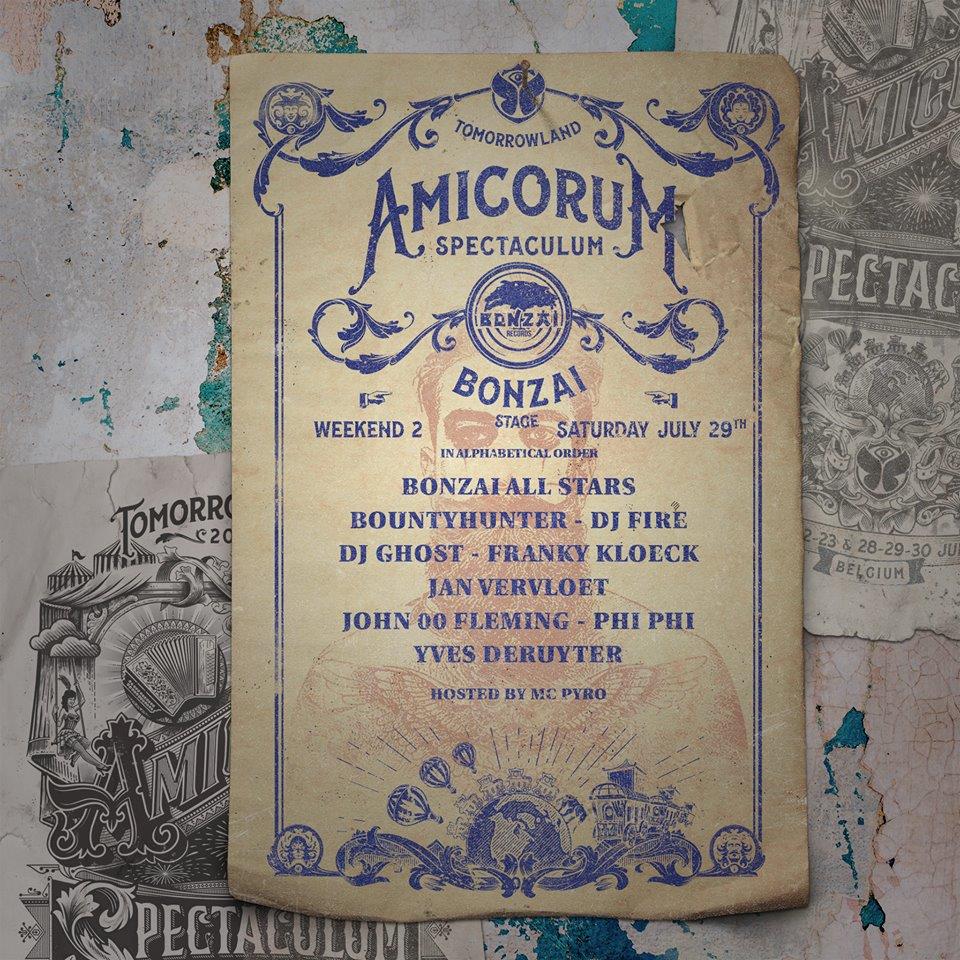 TOMORROWLAND
AMICORUM
SPECTACULUM
BONZAI
RECORDS
BONZAI
STAGE
WEEKEND 2
SATURDAY JULY 29TH
IN ALPHABETICAL ORDER
BONZAI ALL STARS
BOUNTYHUNTER - DJ FIRE
DJ GHOST - FRANKY KLOECK
JAN VERVLOET
JOHN 00 FLEMING - PHI PHI
YVES DERUYTER
HOSTED BY MC PYRO
TOMORRO
20
AMI
SPECTACULUM
AMIC
SPECTAC
2-23 & 28-29-30 JU
BELGIUM